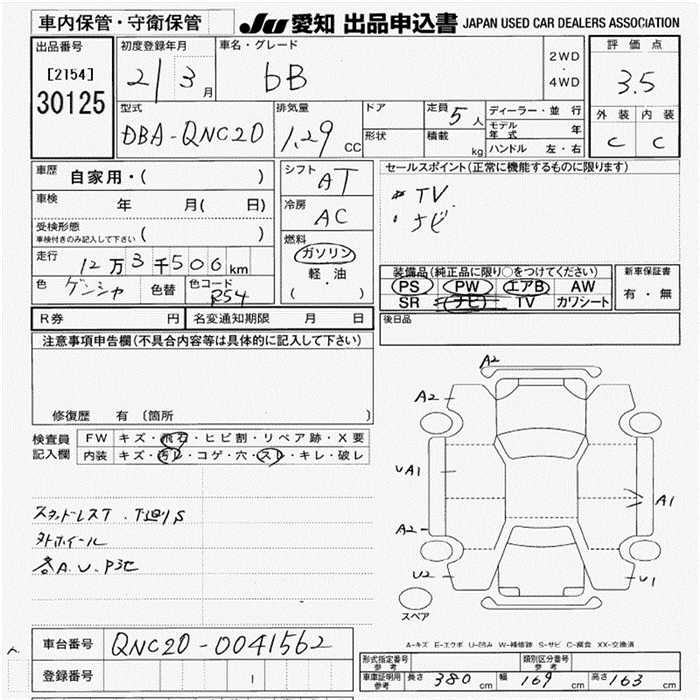 車内保管・守衛保管
JU 愛知 出品申込書 JAPAN USED CAR DEALERS ASSOCIATION
出品番号
[2154]
30125
初度登録年月
21 3 月
車名・グレード
bB
2WD
・
4WD
評価点
3.5
外装 内装
C C
型式
DBA-QNC20
排気量
1.29 CC
ドア
形状
定員 5 人
積載 kg
ディーラー・並行
モデル年式 年
ハンドル 左・右
車歴 自家用・( )
車検 年 月( 日)
受検形態
車検付きのみ記入して下さい ( )
走行 12万3千506km
色 ゲンシャ 色替 色コード R54
シフト AT
冷房 AC
燃料
ガソリン
軽・油
( )
セールスポイント(正常に機能するものに限ります)
TV
・ナビ
装備品(純正品に限り○をつけてください)
PS PW エアB AW
SR ナビ TV カワシート
新車保証書
有・無
R券 円 名変通知期限 月 日
後日品
注意事項申告欄(不具合内容等は具体的に記入して下さい)
修復歴 有〔箇所 〕
検査員記入欄
FW キズ・飛石・ヒビ割・リペア跡・X要
内装 キズ・汚レ・コゲ・穴・スレ・キレ・破レ
外ホイール
A2
A2
UA1
A1
A2
U2
U1
スペア
A-キズ E-エクボ U-凹み W-補修跡 S-サビ C-腐食 XX-交換済
車台番号 QNC20-0041562
登録番号
形式指定番号 参考
類別区分番号 参考
車庫証明用 参考 長さ 380 cm 幅 169 cm 高さ 163 cm